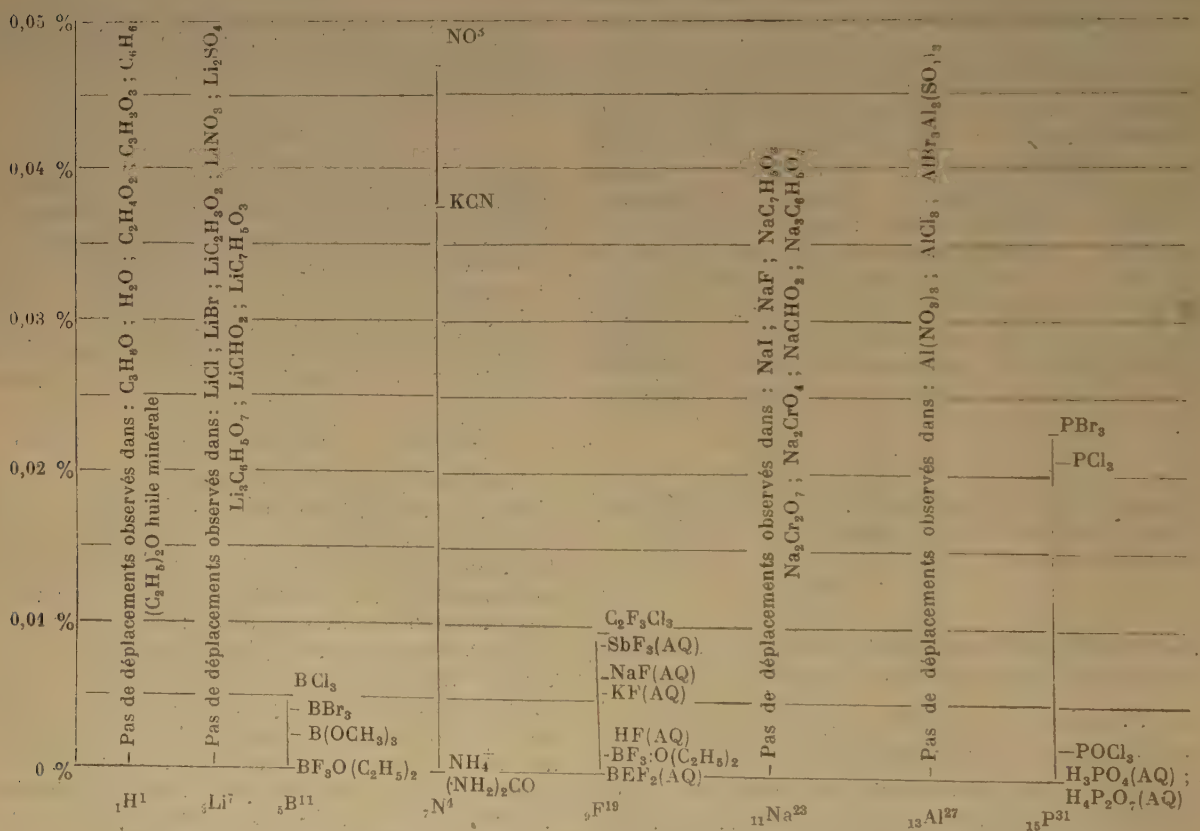 0,05 %
0,04 %
0,03 %
0,02 %
0,01 %
0 %
Pas de déplacements observés dans : C₃H₆O ; H₂O ; C₂H₄O₂ ; C₃H₃O₃ ; C₆H₆
(C₂H₅)₂O huile minérale
Pas de déplacements observés dans : LiCl ; LiBr ; LiC₂H₃O₂ ; LiNO₃ ; Li₂SO₄
Li₃C₆H₅O₇ ; LiCHO₂ ; LiC₇H₅O₃
BCl₃
BBr₃
B(OCH₃)₃
BF₃O(C₂H₅)₂
NO³
KCN
NH₄⁺
(NH₂)₂CO
C₂F₃Cl₃
SbF₃(AQ)
NaF(AQ)
KF(AQ)
HF(AQ)
BF₃:O(C₂H₅)₂
BEF₂(AQ)
Pas de déplacements observés dans : NaI ; NaF ; NaC₇H₅O₂
Na₂Cr₂O₇ ; Na₂CrO₄ ; NaCHO₂ ; Na₃C₆H₅O₇
Pas de déplacements observés dans : Al(NO₃)₃ ; AlCl₃ ; AlBr₃ Al₂(SO₄)₃
PBr₃
PCl₃
POCl₃
H₃PO₄(AQ) ;
H₄P₂O₇(AQ)
₁H¹
₃Li⁷
₅B¹¹
₇N⁴
₉F¹⁹
₁₁Na²³
₁₃Al²⁷
₁₅P³¹